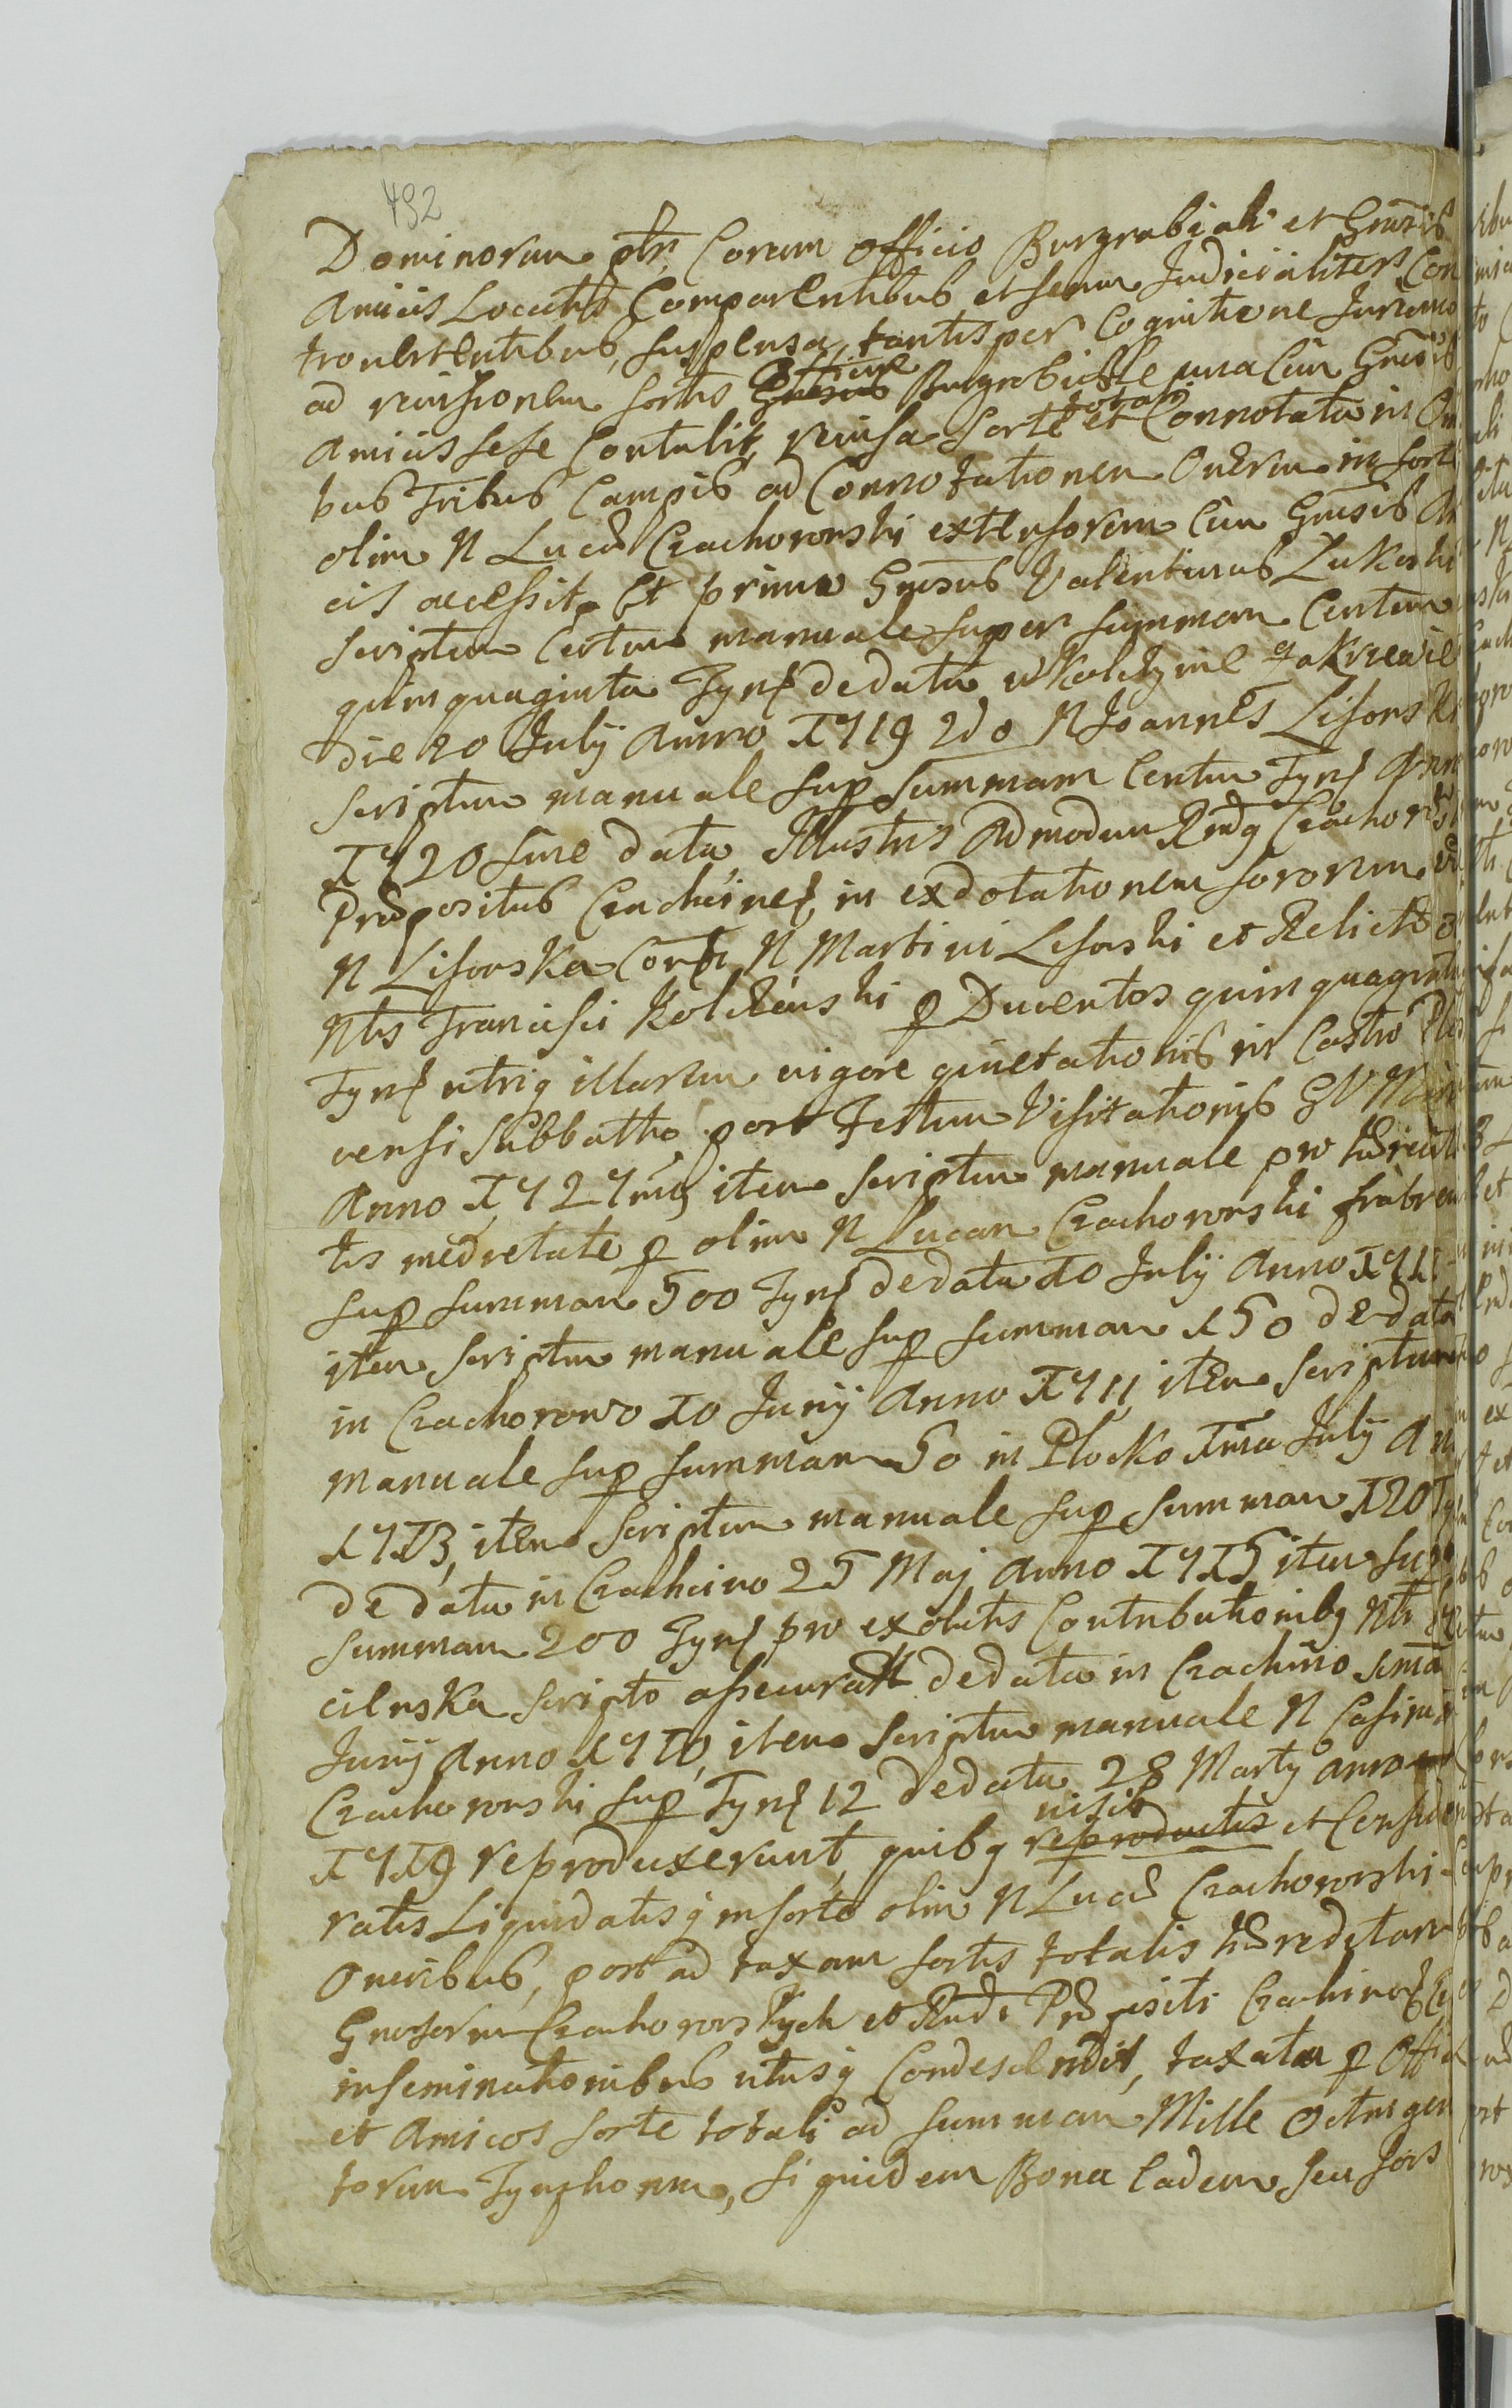 492
Dominorum ptr Coram Officio Burgrabiali et Gnrsis
Amicis Locatis Comparentibus et secum Judicialiter Con
trovertentibus, suspensa tantisper Cognitione Juramen
ad revisionem sortis Officium Burgrabiale una cum Gnrsis
Amicis sese Contulit, revisa sorte totali et Connotata in Om
bus Tribus Campis ad Connotationem Onerum in sorte
olim N Lucæ Czachorowski extensorum cum Gnrsis Ami
cis accessit. Et primo Gnrsus Valentinus Zukoski
scriptum certum manuale super summam Centum
quinquaginta Tynf de data w Kolczynie
die 20 July Anno 1719 2do N Joannes Lisowski
scriptum manuale sup summam Centum Tynf Anno
1720 sine data, Illustris Admodum Rndg Czachorowski
Præpositus Czachcinen, in exdotationem sororum
N Lisowska Consr N Martini Lisowski et Relictæ
Ntis Francisci Kolczinski p Ducentos quinquaginta
Tynf utriq illarum vigore quietationis in Castro Plo
censi Sabbatho post Festum Visitationis BV Mariæ
Anno 1727mo item scriptum manuale pro hæredita
tis medietate p olim N Lucam Czachorowski fratrem
sup summam 500 Tynf de data 10 July Anno
item scriptum manuale sup summam 150 de data
in Czachorowo 10 Juny Anno 1711, item scriptum
manuale sup summam 50 in Plocko 1ma July An
1713, item scriptum manuale sup summam 120 Ty
de data in Czachcino 25 Maj Anno 1715 item sup
summam 200 Tynf pro exolutis Contributionibg Ntr
cilnska scripto assecurat de data in Czachcino
Juny Anno 1710, item scriptum manuale N Casimir
Czachorowski sup Tynf 12 de data 28 Marty Anno
1719 reproduxerunt, quibg visis reproductis et Conside
ratis Liquidatisq in sorte olim N Lucæ Czachorowski
Oneribus, post ad taxam sortis totalis hæreditariæ
Gnrsorum Czachorowskych et Rndi Præpositi Czachcinen
inseminationibus utusq Condescendit, taxata p Offici
et Amicos sorte totali ad summam Mille Octingen
torum Tynphorum, siquidem Bona eadem seu sors